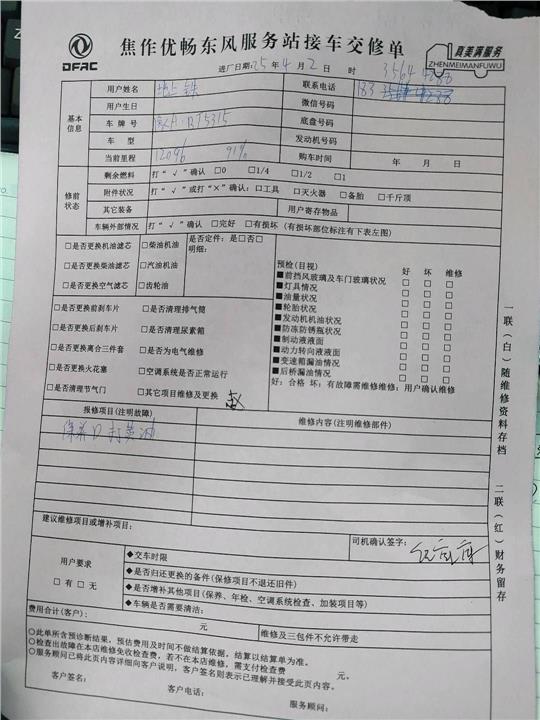 DFAC
焦作优畅东风服务站接车交修单
真美满服务
ZHENMEIMANFUWU
进厂日期:25年4月2日 时
基本信息
用户姓名
联系电话
用户生日
微信号码
车牌号
底盘号码
车型
发动机号码
当前里程 12096 91%
购车时间 年 月 日
修前状态
剩余燃料 打“√”确认 □0 □1/4 □1/2 □1
附件状况 打“√”或打“×”确认:□工具 □灭火器 □备胎 □千斤顶
其它装备
用户寄存物品
车辆外部情况 打“√”确认 □完好 □有损坏(有损坏部位标注有下表左图)
□是否更换机油滤芯 □柴油机油
□是否更换柴油滤芯 □汽油机油
□是否更换空气滤芯 □齿轮油
是否定件:是□否□
明细:
□是否更换前刹车片 □是否清理排气筒
□是否更换后刹车片 □是否清理尿素箱
□是否更换离合三件套 □是否为电气维修
□是否更换火花塞 □空调系统是否正常运行
□是否清理节气门 □其它项目维修及更换
预检(目视) 好 坏 维修
■前挡风玻璃及车门玻璃状况 □ □ □
■灯具情况 □ □ □
■油量状况 □ □ □
■轮胎状况 □ □ □
■发动机机油状况 □ □ □
■防冻防锈瓶状况 □ □ □
■制动液液面 □ □ □
■动力转向液液面 □ □ □
■变速箱漏油情况 □ □ □
■后桥漏油情况 □ □ □
好:合格 坏:有故障需维修维修:用户确认维修
报修项目(注明故障)
维修内容(注明维修部件)
保养 打黄油
建议维修项目或增补项目:
司机确认签字:
用户要求
□有□无
◆交车时限
◆是否归还更换的备件(保修项目不退还旧件)
◆是否增补其他项目(保养、年检、空调系统检查、加装项目等)
◆车辆是否需要清洁:
费用合计(客户): 元
维修及三包件不允许带走
○此单所含预诊断结果,预估费用及时间不做结算依据,结算以结算单为准。
○检查出故障在本店维修免收检查费,若不在本店维修,需支付检查费 元。
○服务顾问已将此页内容详细向客户说明,客户签名则表示已理解并接受此页内容。
客户签名: 客户电话: 服务顾问:
一联(白)随维修资料存档
二联(红)财务留存